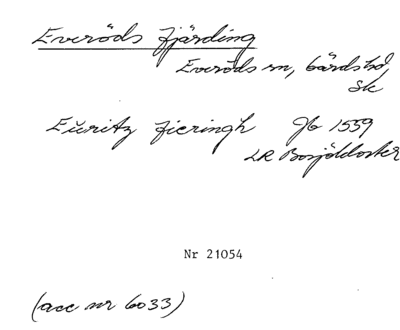 Everöds fjärding
Everöds sn, Gärds hd
Sk
Eüritz fieringh Jb 1559
LR Bosjökloster
Nr 21054
(acc nr 6033)